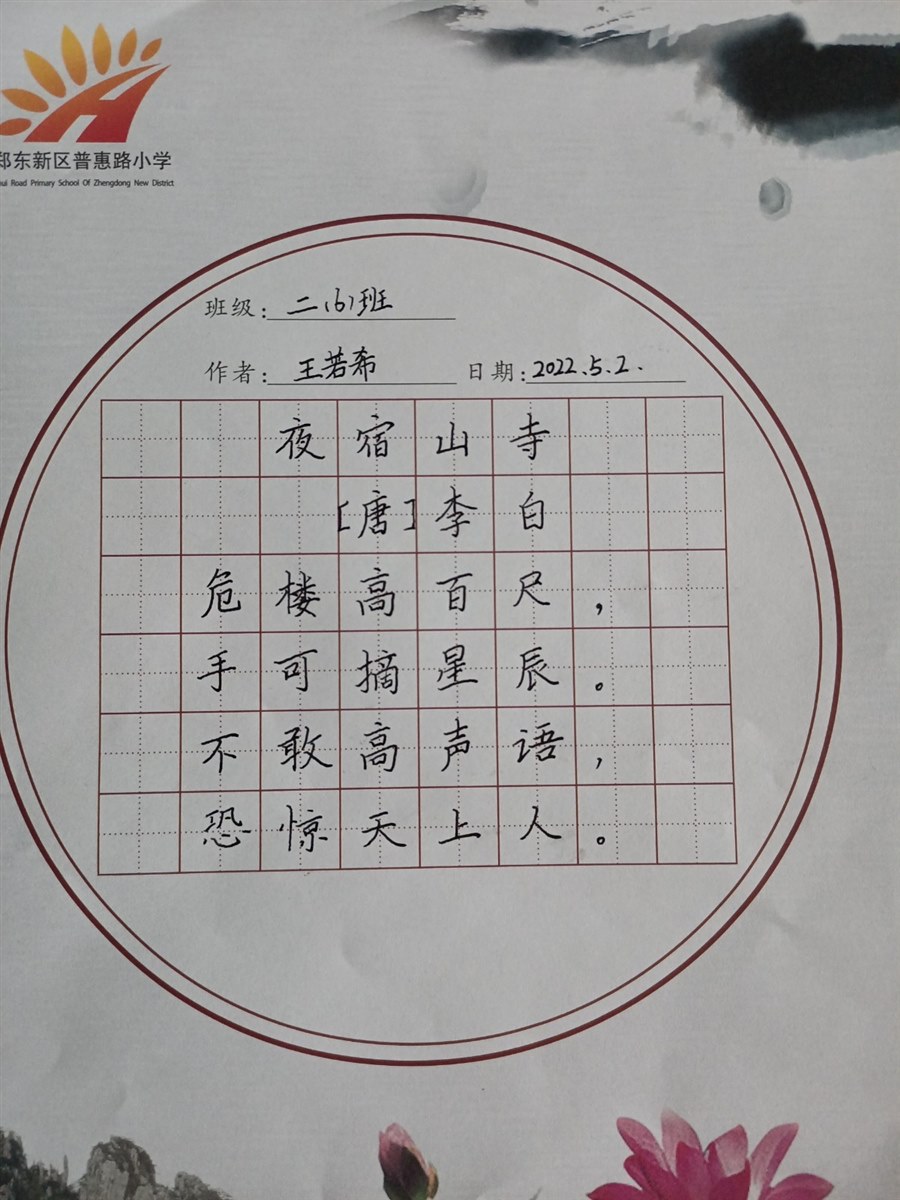 郑东新区普惠路小学
hui Road Primary School Of Zhengdong New District
班级：二（6）班
作者：王若希 日期：2022.5.2.
夜宿山寺
[唐]李白
危楼高百尺，
手可摘星辰。
不敢高声语，
恐惊天上人。